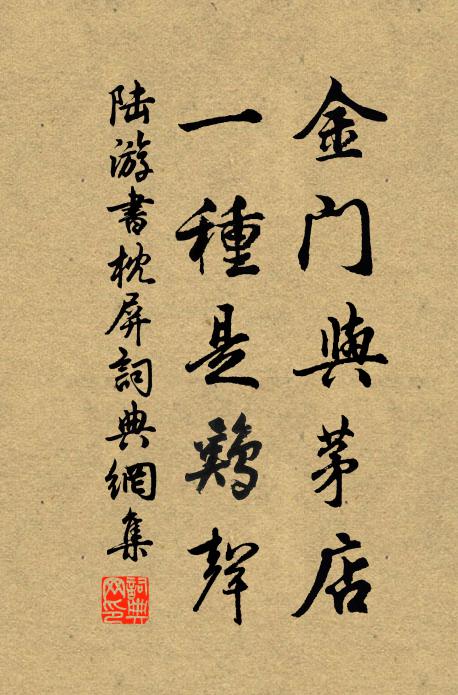 金门與茅店
一種是鷄聲
陆游書枕屏詞典網集
詞典网印